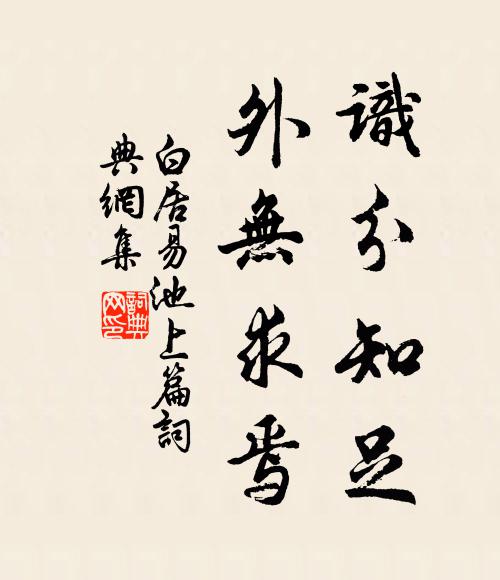 識分知足
外無求焉
白居易池上篇詞
典網集
詞典
网印